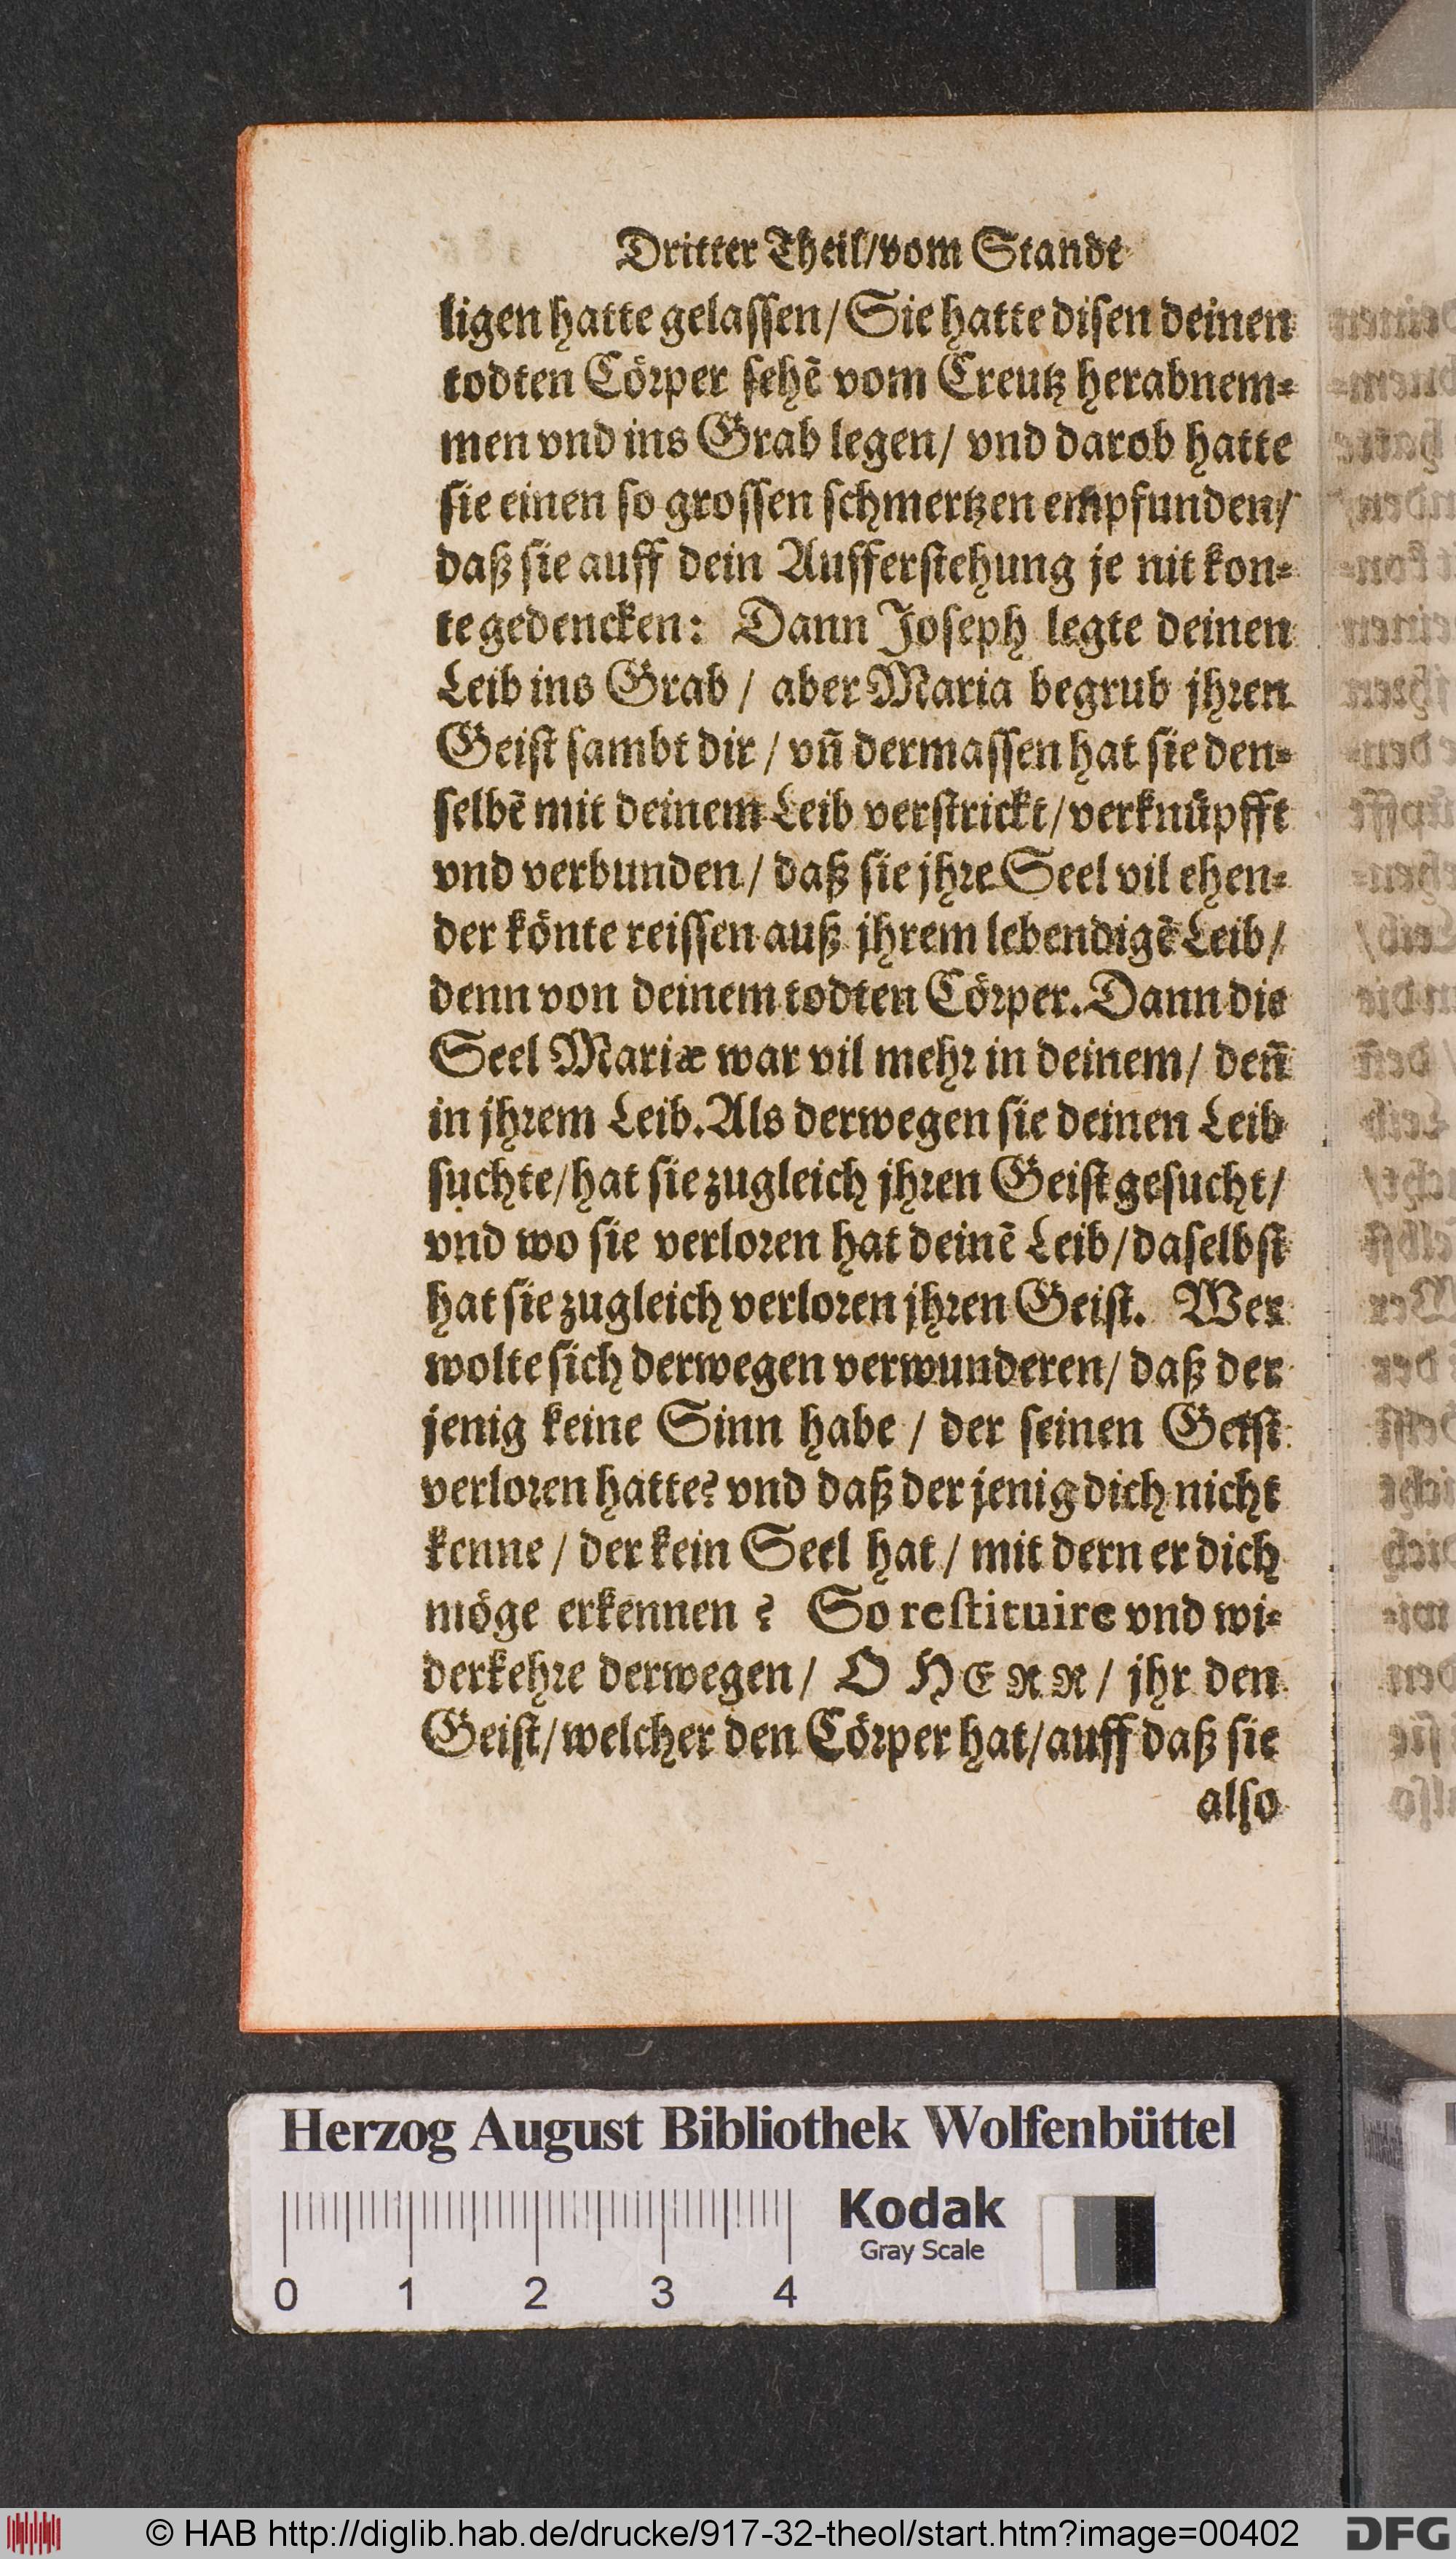 Dritter Theil/vom Stande
ligen hatte gelaſſen/Sie hatte diſen deinen
todten Cörper ſehẽ vom Creutz herabnem⸗
men vnd ins Grab legen/ vnd darob hatte
ſie einen ſo groſſen ſchmertzen empfunden/
daß ſie auff dein Aufferſtehung je nit kon⸗
te gedencken: Dann Joſeph legte deinen
Leib ins Grab / aber Maria begrub jhren
Geiſt ſambt dir / vñ dermaſſen hat ſie den⸗
ſelbẽ mit deinem Leib verſtrickt/verknüpfft
vnd verbunden/ daß ſie jhre Seel vil ehen⸗
der könte reiſſen auß jhrem lebendigẽ Leib/
denn von deinem todten Cörper. Dann die
Seel Mariæ war vil mehr in deinem/ deñ
in jhrem Leib. Als derwegen ſie deinen Leib
ſuchte/hat ſie zugleich jhren Geiſt geſucht/
vnd wo ſie verloren hat deinẽ Leib/daſelbſt
hat ſie zugleich verloren jhren Geiſt. Wer
wolte ſich derwegen verwunderen/ daß der
jenig keine Sinn habe / der ſeinen Geiſt
verloren hatte? vnd daß der jenig dich nicht
kenne / der kein Seel hat / mit dern er dich
möge erkennen ? So reſtituire vnd wi⸗
derkehre derwegen/ O HERR/ jhr den
Geiſt/welcher den Cörper hat/auff daß ſie
alſo
Herzog August Bibliothek Wolfenbüttel
Kodak
Gray Scale
0 1 2 3 4
© HAB http://diglib.hab.de/drucke/917-32-theol/start.htm?image=00402
DFG